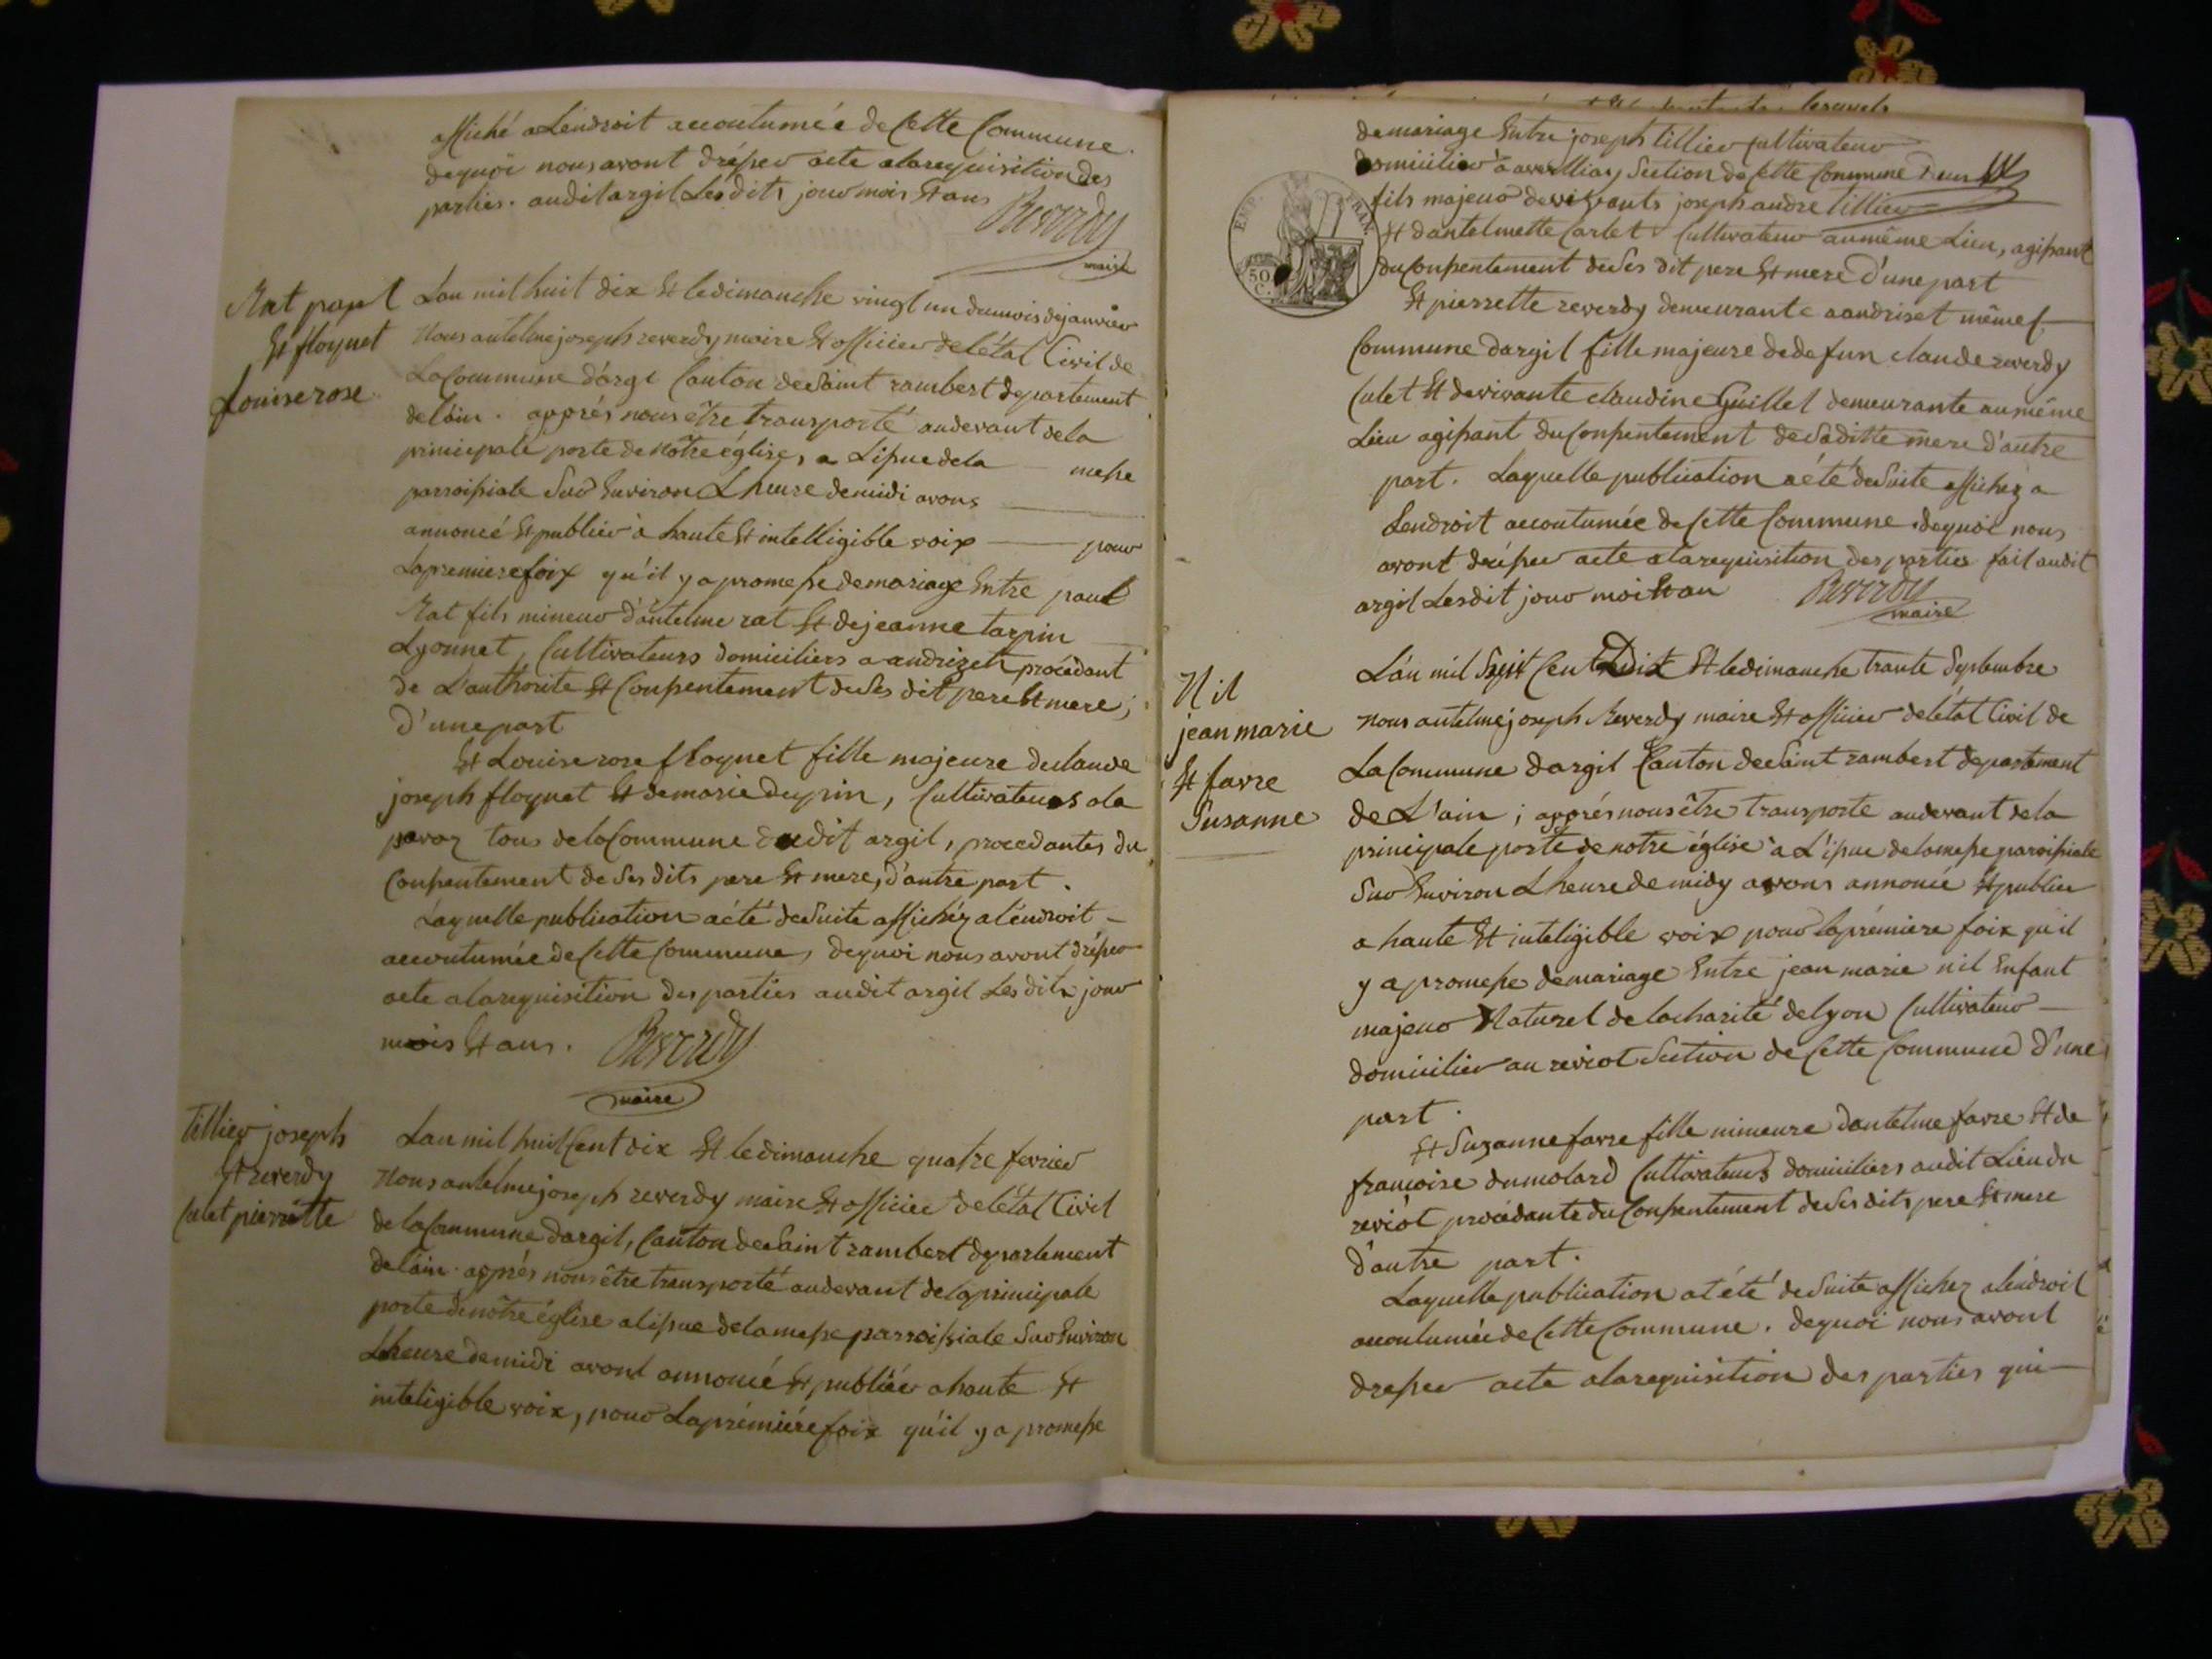 affiché a Lendroit accoutumée de Cette Commune.
dequoi nous avont drésser acte alarequisition des
parties. audit argil Lesdits jour mois Et ans
Reverdy
maire
Rat paul
Et floynet
Louise rose
Lan mil huit dix Et ledimanche vingt un dumois dejanvier
Nous antelme joseph reverdy maire Et officier de létat Civil de
La Commune d'argi Canton de Saint rambert departement
de l'ain. apprés nous être transporté audevant de la
principale porte de Nôtre église, a L'issue de la messe
parroissiale Sur Environ L'heure de midi avons
annoncé Et publier à haute Et intelligible voix pour
La premiere foix qu'il y a promesse de mariage Entre paul
Rat fils mineur d'antelme rat Et de jeanne tarpin
Lyonnet, Cultivateurs domiciliers a andrizet procédant
de L'authorite Et Consentement de Ses dit pere Et mere;
d'une part
Et Louise rose floynet fille majeure de claude
joseph floynet Et de marie dupin, Cultivateurs a la
pavaz tous de la Commune dudit argil, procedantes du
Consentement de Ses dits pere Et mere, d'autre part.
Laquelle publication a été de Suite affichéz a l'endroit
accoutumée de Cette Commune, dequoi nous avont drésser
acte a la requisition des parties audit argil Les dits jour
mois Et ans. Reverdy
maire
tillier joseph
Et reverdy
Culet pierrette
Lan mil huit Cent dix Et le dimanche quatre ferrier
Nous antelme joseph reverdy maire Et officier de létat Civil
de la Commune d'argil, Canton de Saint rambert departement
de l'ain. apprés nous être transporté audevant de la principale
porte de nôtre église a l'issue de la messe parroissiale Sur Environ
Lheure de midi avont annoncé Et publiéer a haute Et
inteligible voix, pour La prémiére foix qu'il y a promesse
de mariage Entre joseph tillier Cultivateur
domicilier à averlliaz Section de Cette Commune
fils majeur de vivants joseph andre tillier
Et dantelmette Carlet Cultivateur au même Lieu, agissant
du Consentement de Ses dit pere Et mere d'une part
Et pierrette reverdy demeurante a andriset même
Commune d'argil fille majeure de defun claude reverdy
Culet Et de vivante claudine Guillet demeurante au même
Lieu agissant du Consentement de Saditte mere d'autre
part. Laquelle publication a été de Suite affichéz a
Lendroit accoutumée de Cette Commune dequoi nous
avont drésser acte a la requisition des parties fait audit
argil Lesdit jour moi Et an Reverdy
maire
EMP. FRAN.
50
C.
Nil
jean marie
Et favre
Susanne
L'an mil huit Cent Dix Et le dimanche trante Septembre
nous antelme joseph Reverdy maire Et officier de létat Civil de
La Commune d'argil Canton de Saint rambert departement
de L'ain; apprés nous être transporte audevant de la
principale porte de notre église à L'issue de la messe paroissiale
Sur Environ L'heure de midy avons annoncée Et publier
a haute Et inteligible voix pour la prémiere foix qu'il
y a promesse de mariage Entre jean marie nil Enfant
majeur Naturel de la charité de lyon Cultivateur
domicilier au reviot Section de Cette Commune d'une
part.
Et Suzanne favre fille mineure dantelme favre Et de
francoise dumolard Cultivateurs domiciliers audit Lieu du
reviot procedante du Consentement de Ses dits pere Et mere
d'autre part.
Laquelle publication at été de Suite affichez a l'endroit
accoutumée de Cette Commune. dequoi nous avont
dresser acte a la requisition des parties qui